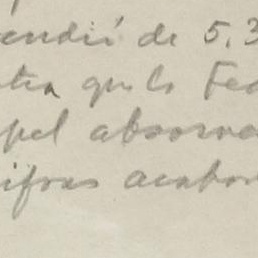 endió de 5.3
tra que la Fed
pel absorva
ifras acabar